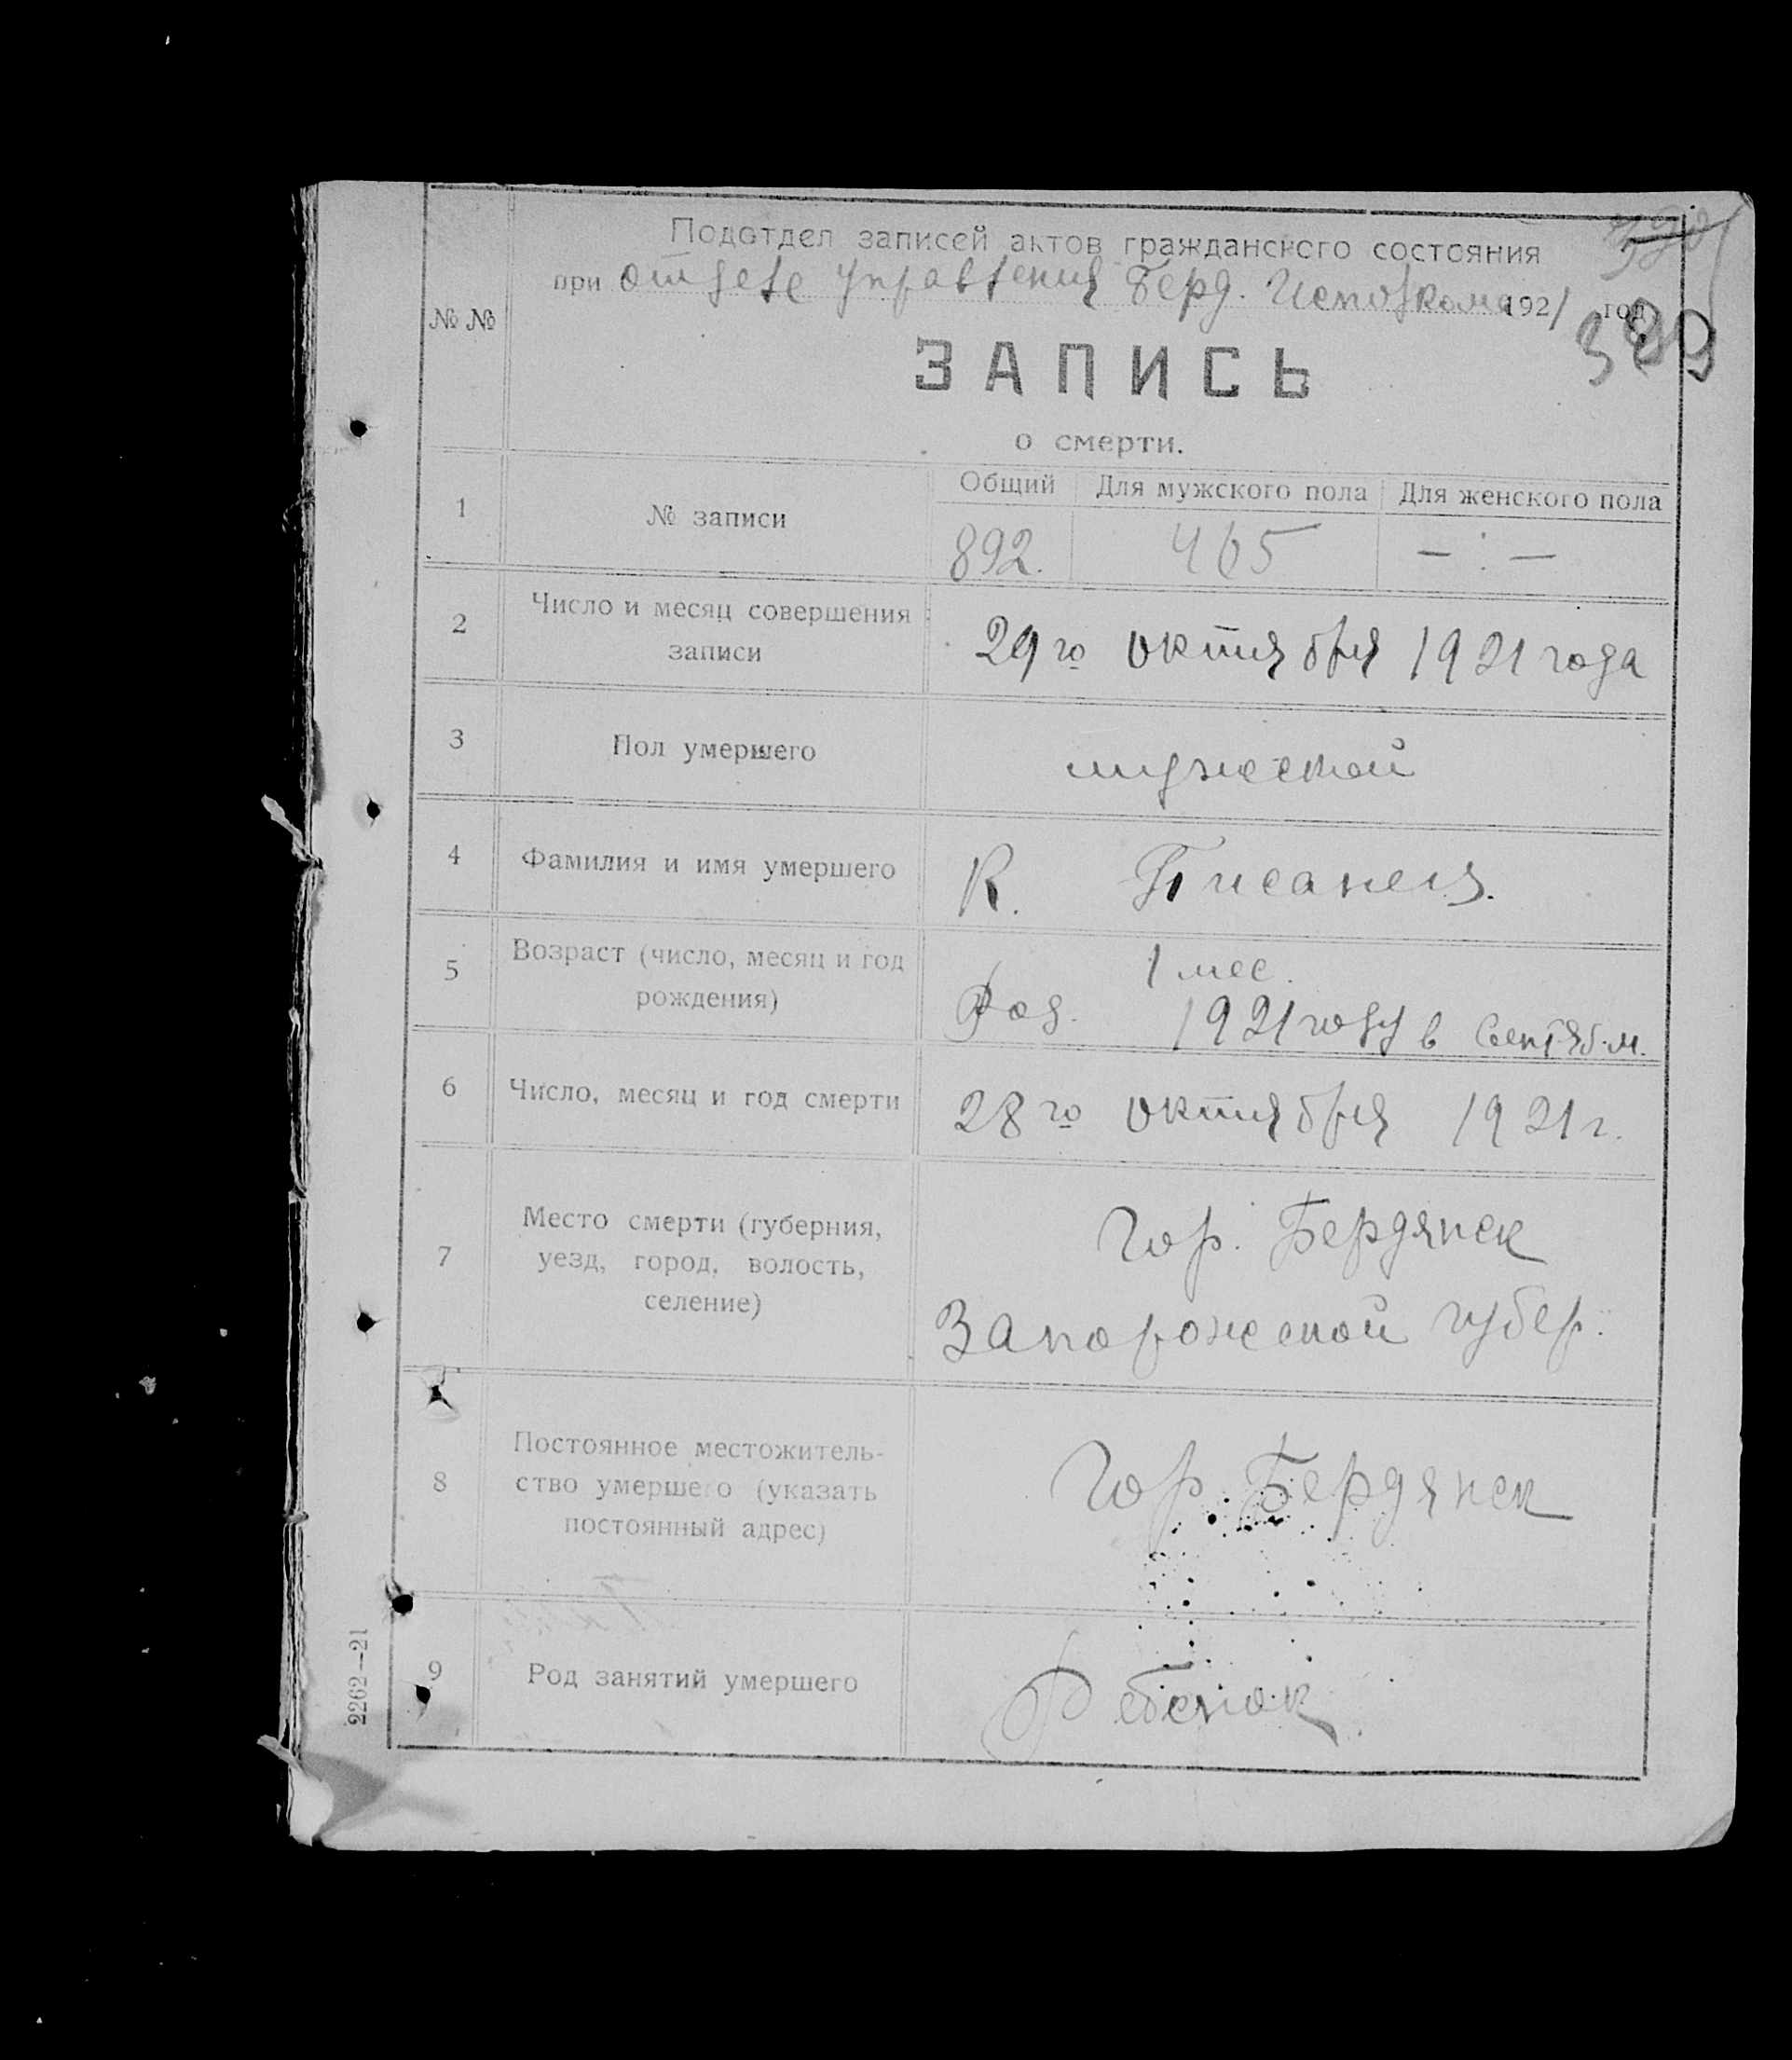 Подотдел записей актов гражданского состояния
при отделе управления Берд. Исполкома 1921 год.
389
№ №
ЗАПИСЬ
о смерти.
1 № записи Общий Для мужского пола Для женского пола
892. 465 — : —
2 Число и месяц совершения
записи
29го октября 1921 года
3 Пол умершего мужеской
4 Фамилия и имя умершего К. Писанец.
5 Возраст (число, месяц и год
рождения)
1 мес.
Род. 1921 году в Сентяб. м.
6 Число, месяц и год смерти 28го октября 1921 г.
7 Место смерти (губерния,
уезд, город, волость,
селение)
Гор. Бердянск
Запорожской губер.
8 Постоянное местожитель-
ство умершего (указать
постоянный адрес)
Гор. Бердянск
9 Род занятий умершего Ребенок.
2262—21